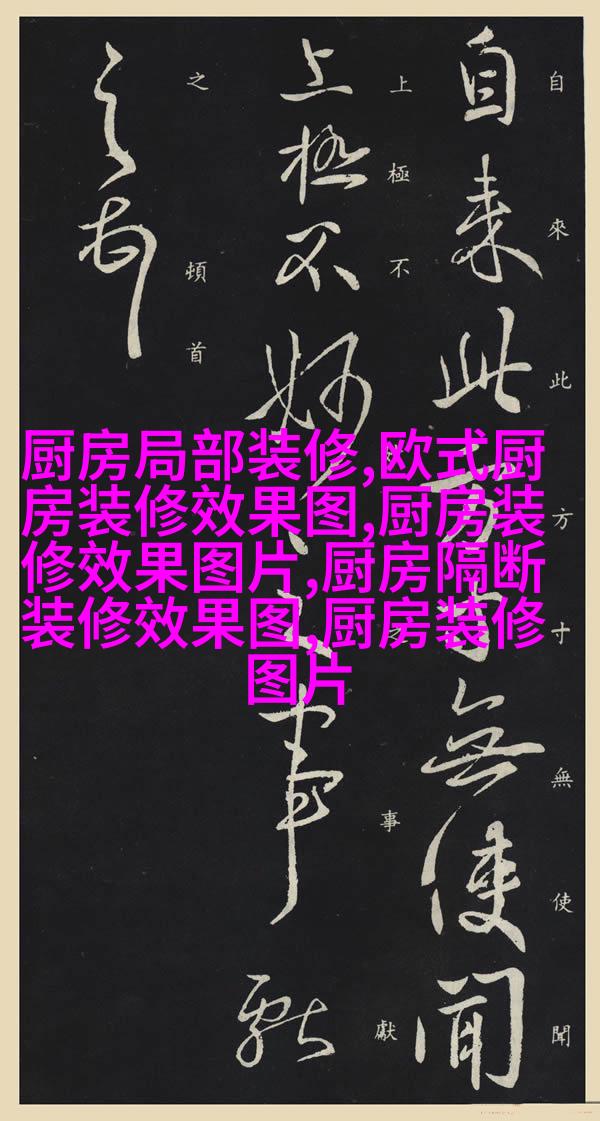 自來此方寸無使聞
自來此方寸無使聞
上極不
上極不好之事獻
事獻
之頓首
之頓首
厨房局部装修,欧式厨
房装修效果图,厨房装
修效果图片,厨房隔断
装修效果图,厨房装修
图片